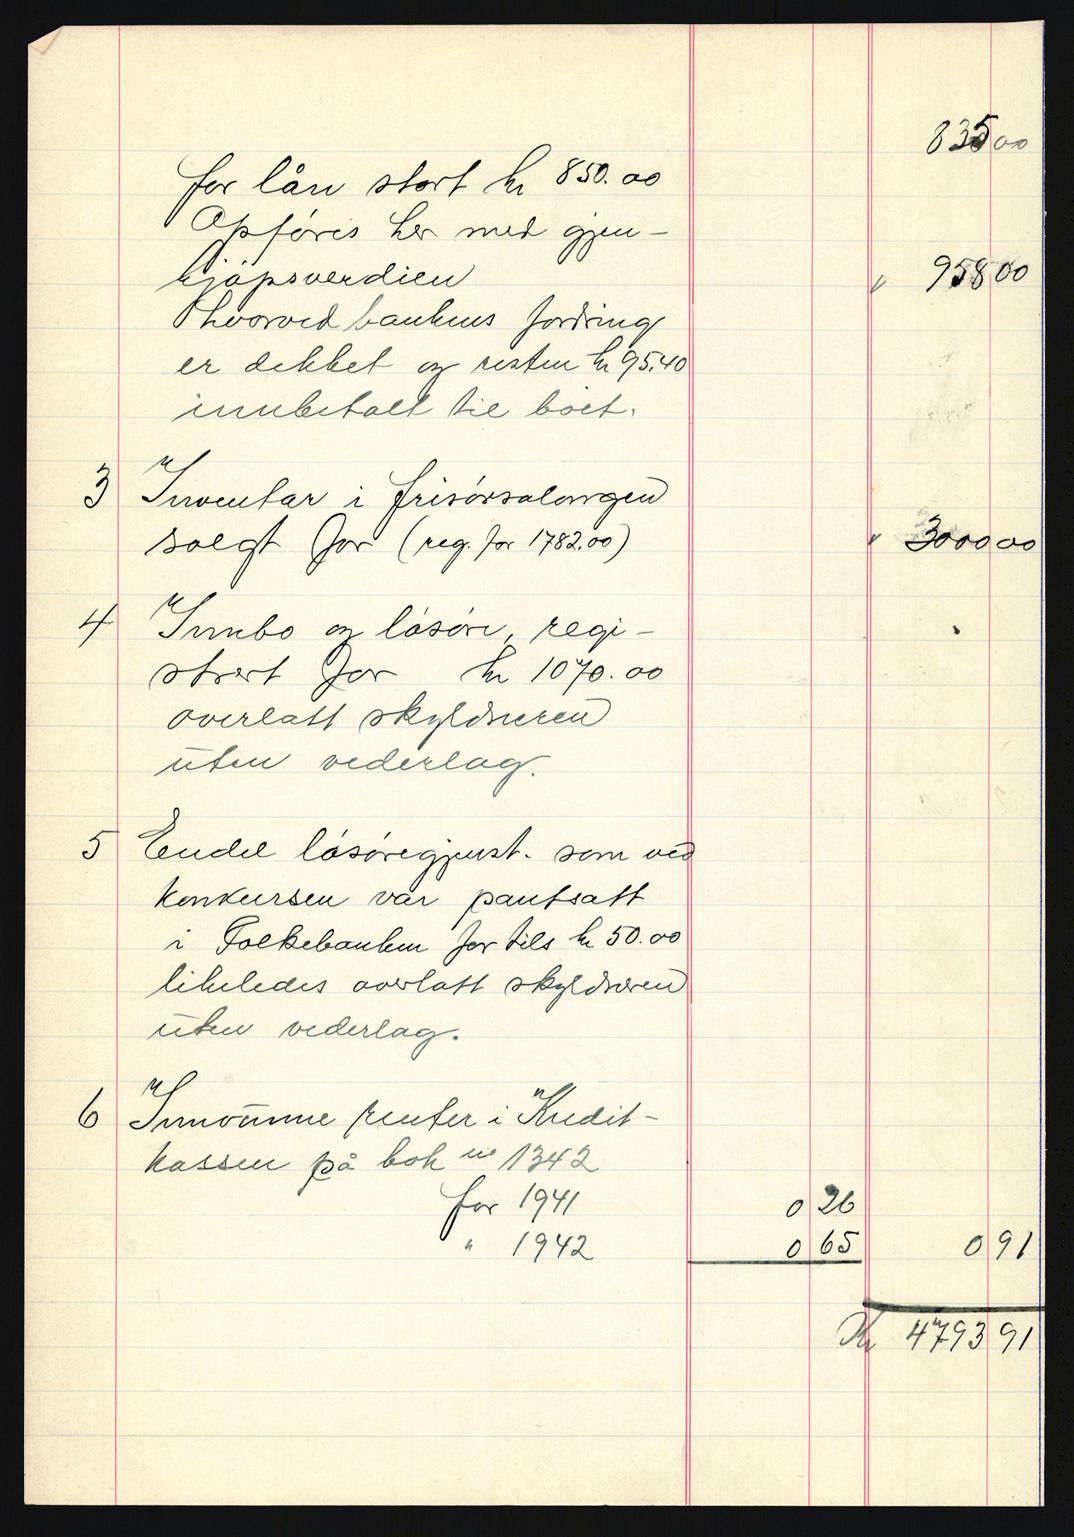 835 00
for lån stort kr 850.00
Opføres her med gjen-
kjøpsverdien " 958 00
hvorved bankens fordring
er dekket og resten kr 95.40
innbetalt til boet.
3 Inventar i frisørsalongen
solgt for (reg. for 1782.00) " 3000 00
4 Innbo og løsøre, regi-
strert for kr 1070.00
overlatt skyldneren
uten vederlag.
5 Endel løsøregjenst. som ved
konkursen var pantsatt
i Folkebanken for tils kr 50.00
likeledes overlatt skyldneren
uten vederlag.
6 Innvunne renter i Kredit-
kassen på bok no 1342
for 1941 0 26
" 1942 0 65 0 91
Kr 4793 91